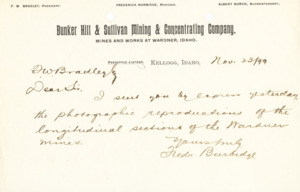 F. W. BRADLEY, PRESIDENT. FREDERICK BURBIDGE, MANAGER. ALBERT BURCH, SUPERINTENDENT.
Bunker Hill & Sullivan Mining & Concentrating Company.
MINES AND WORKS AT WARDNER, IDAHO.
KELLOGG, IDAHO, Nov. 23/99
F W Bradley
Dear Sir
I sent you by express yesterday
the photographic reproductions of the
longitudinal sections of the Wardner
mines.
Yours truly
Fredk Burbidge